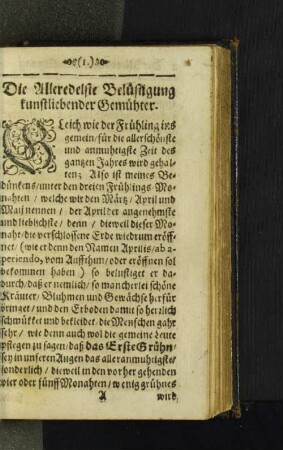 (1.)
Die Alleredelste Belüstigung
kunstliebender Gemühter.
GLeich wie der Frühling ins
gemein / für die allerschönste
und anmuhtigste Zeit des
gantzen Jahres wird gehal-
ten; Also ist meines Be-
dünkens / unter den dreien Frühlings Mo-
nahten / welche wir den Märtz / April und
Maij nennen / der April der angenehmste
und lieblichste / denn / dieweil dieser Mo-
naht / die verschlossene Erde wiedrum eröff-
net / (wie er denn den Namen Aprilis / ab a-
periendo, vom Aufftuhm / oder eröffnen sol
bekommen haben) so belustiget er da-
durch / daß er nemlich / so mancherlei schöne
Kräuter / Bluhmen und Gewächse herfür
bringet / und den Erboden damit so herzlich
schmükket und bekleidet / die Menschen gahr
sehr / wie denn auch wol die gemeine Leute
pflegen zu sagen / daß das Erste Grühn /
sey in unseren Augen das alleranmuhtigste /
sonderlich / dieweil in den vorher gehenden
vier oder fünff Monahten / wenig grühnes
A wird